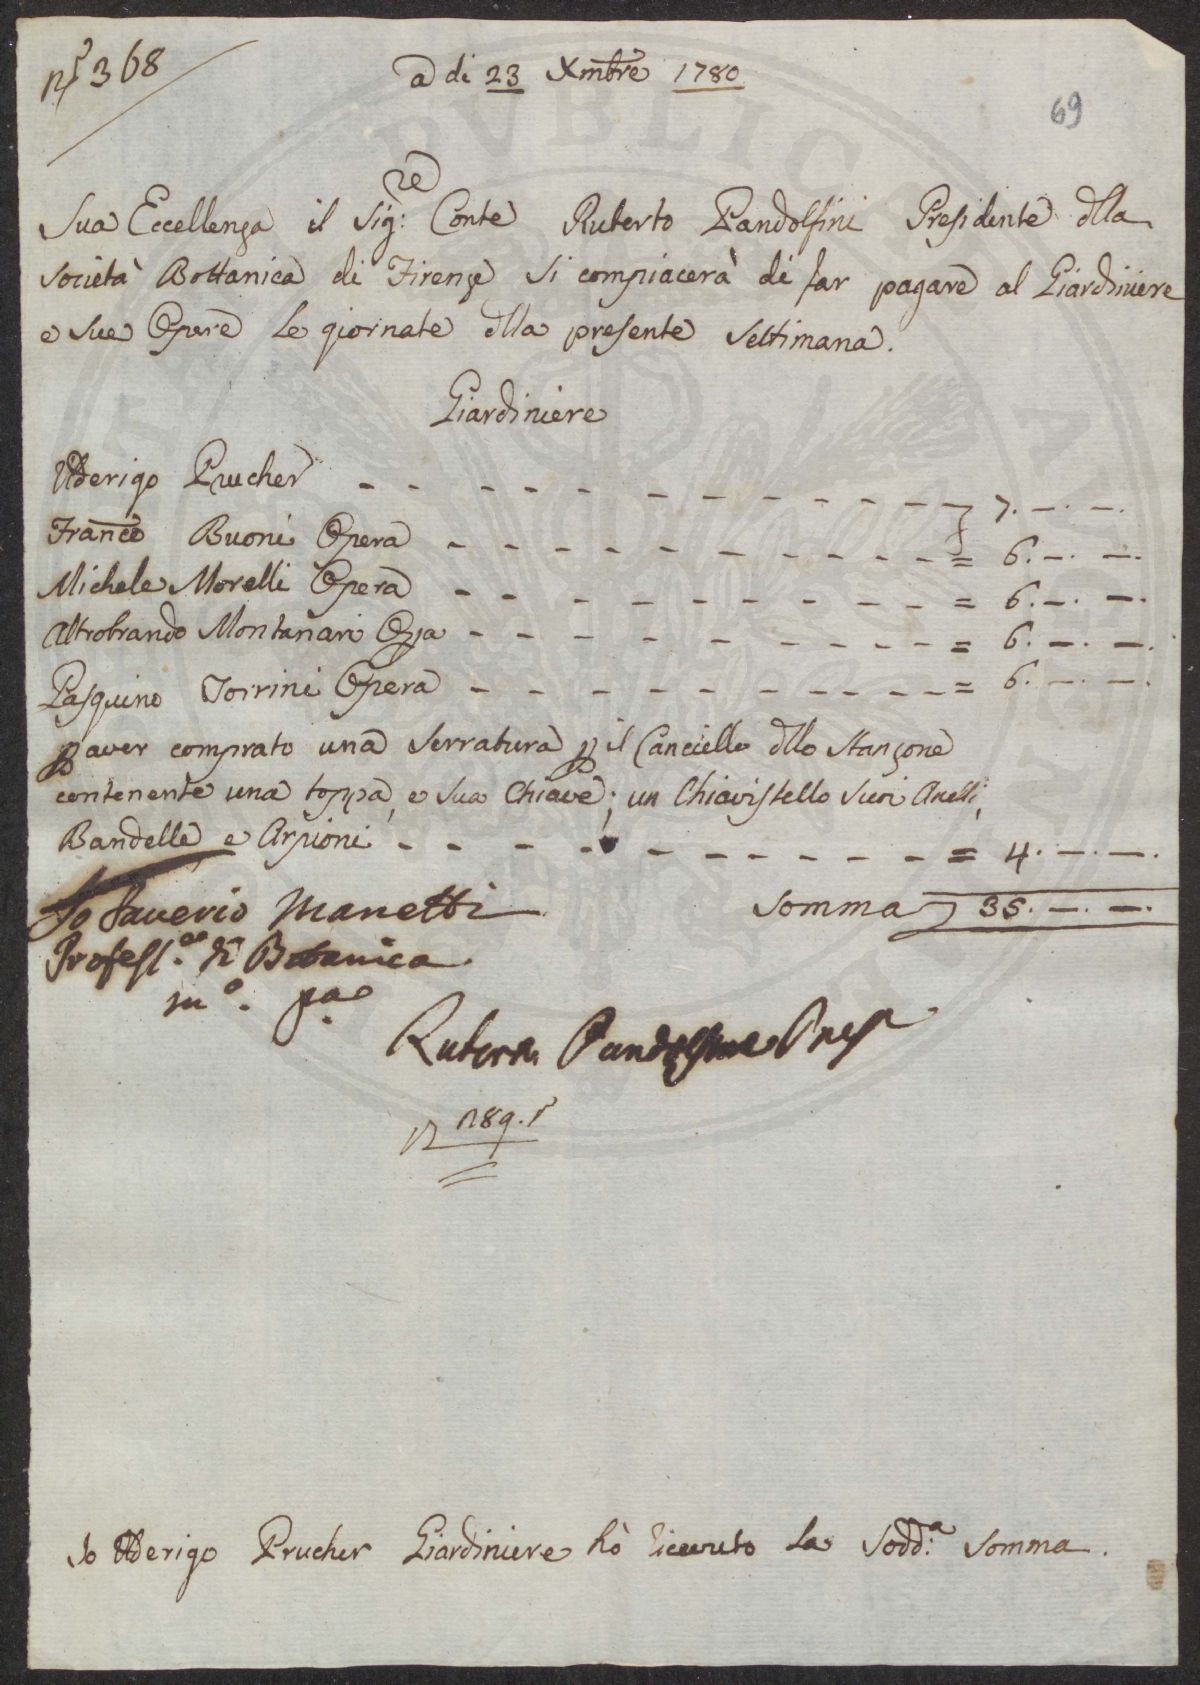 N.° 368
a di 23 Xmbre 1780
69
Sua Eccellenza il Sig:re Conte Ruberto Pandolfini Presidente dlla
Società Bottanica di Firenze si compiacerà di far pagare al Giardiniere
e sue Opere le giornate dlla presente Settimana.
Giardiniere
Udderigo Prucher - - - - - - - - - - - - 7. —. —.
Franco Buoni Opera - - - - - - - - - - = 6. —. —.
Michele Morelli Opera - - - - - - - - - - = 6. —. —.
Altobrando Montanari Opa - - - - - - - - - = 6. —. —.
Pasquino Torrini Opera - - - - - - - - - - = 6. —. —.
p aver comprato una Serratura p il Cancello dllo Stanzone
contenente una toppa, e sua Chiave; un Chiavistello suoi Anelli,
Bandelle e Arpioni - - - - - - - - - - = 4. —. —.
Somma 35. —. —.
Io Saverio Manetti
Profess.re di Botanica
m°. pa.
Ruberto Pandolfini Pres
289.
Io Udderigo Prucher Giardiniere hò riceuto la Sodd:a Somma.